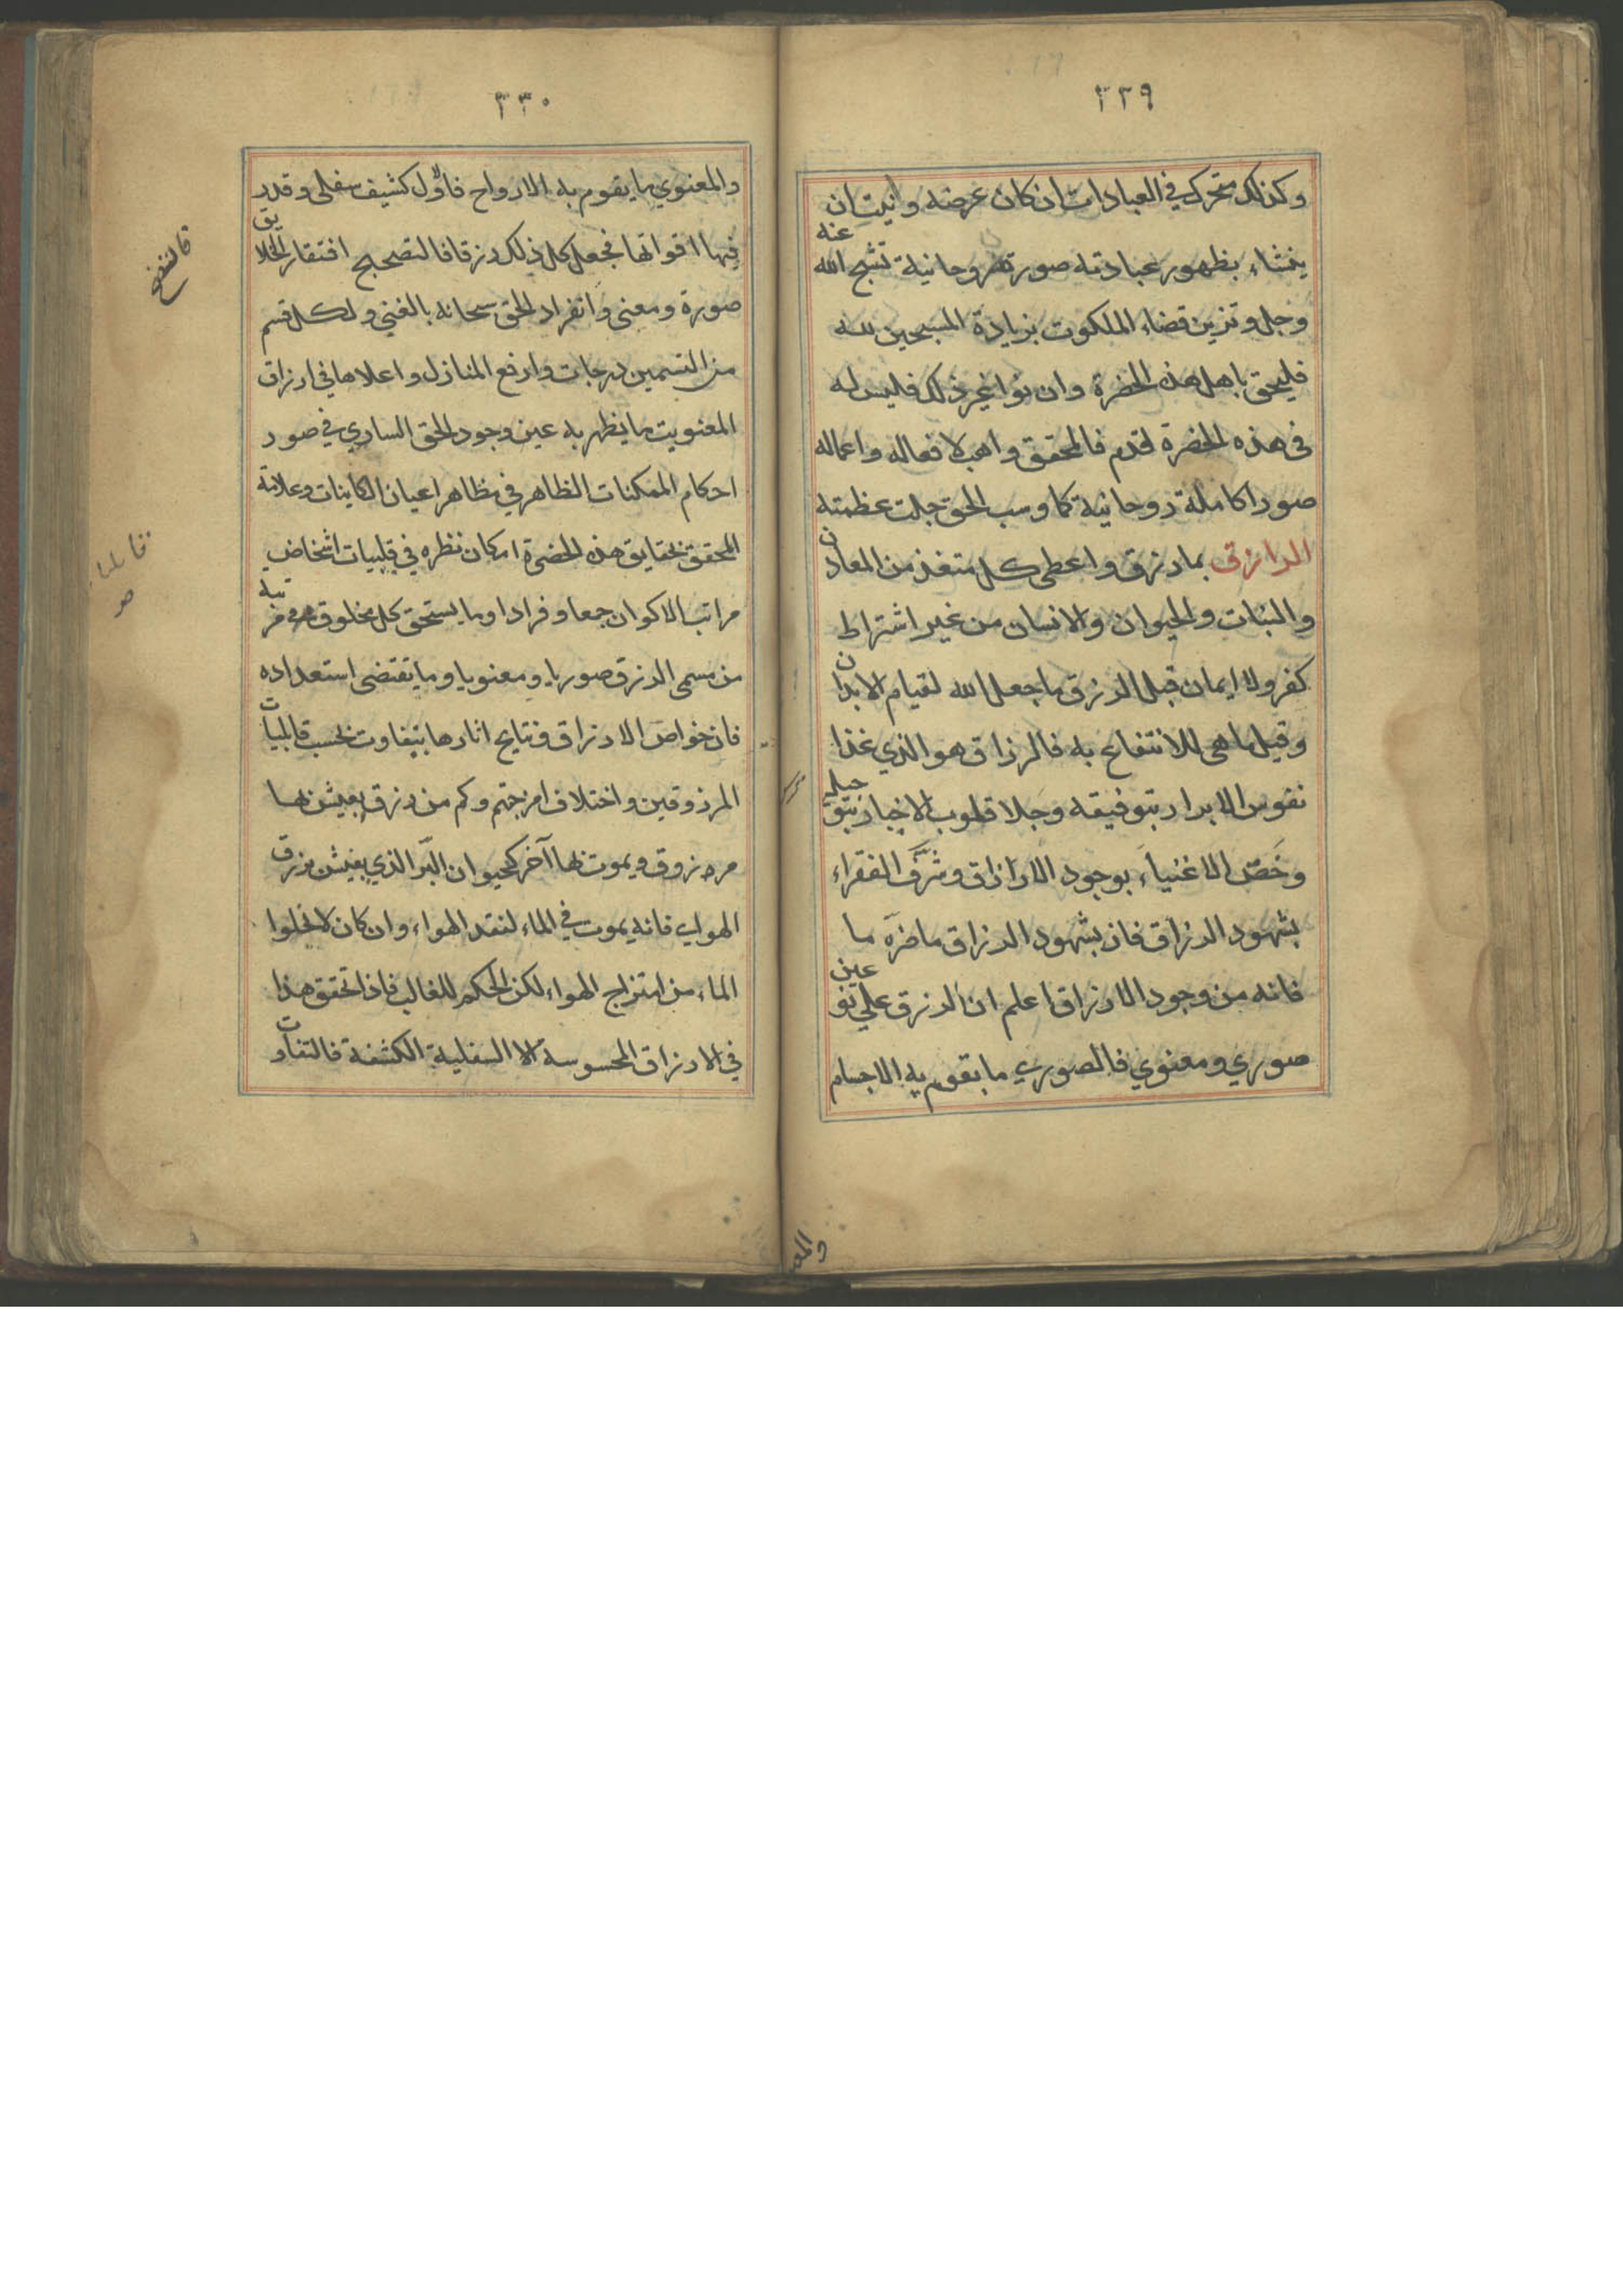 ٣٢٩
وكذلك متحرك في العبادات ان كان غرضه و انيت ان
ينشاء بظهور عبادته صورة روحانية تشبح الله عنه
وجل و تزين قضاء الملكوت بزيادة المسبحين لله
فليحق باهل هذه الحضرة وان نوا غير ذلك فليس له
فى هذه الحضرة قدم فالمحقق واهب لافعاله واعماله
صورا كاملة روحانية كما وسب الحق جلت عظمته
الرازق بما رزق واعطى كل متغذ من المعادن
والنبات والحيوان والانسان من غير اشتراط
كفر ولا ايمان قبل الرزق ما جعل الله لقيام الابدان
وقيل ما هى للانتفاع به فالرزاق هو الذي غذا
نفوس الابرار بتوفيقه وجلا قلوب الاخيار بتوجيله
وخصّ الاغنياء بوجود الارازاق وشرّف الفقراء
بشهود الرزاق فان بشهود الرزاق ما ضرّه ما
فاته من وجود الارزاق اعلم ان الرزق على نوعين
صوري ومعنوي فالصوري ما يقوم به الاجسام
والمع
٣٣٠
والمعنوي ما يقوم به الارواح فاوّل كشيف سفلى وقدر
فيها اقواتها فجعل كل ذلك رزقا فالتصحيح افتقار الخلايق
صورة ومعنى وانفراد الحق سبحانه بالغنى ولكل قسم
من القسمين درجات وارفع المنازل واعلاها في ارزاق
المعنويت ما يظهر به عين وجود الحق الساري في صور
احكام الممكنات الظاهر في مظاهر اعيان الكاينات وعلامة
المحقق بحقايق هذه الحضرة امكان نظره في قلبيات اشخاص
مراتب الاكوان جمعا وفرادا وما يستحق كل مخلوق مرتبه
من مسمى الرزق صوريا ومعنويا وما يقتضى استعداده
فان خواص الارزاق ونتايج اثارها يتفاوت بحسب قابليات
المرزوقين واختلاف امزجتهم وكم من رزق يعيش بها
مرزوق ويموت بها آخر كحيوان البّر الذي يعيش برزق
الهواء فانه يموت في الماء لنقد الهواء وان كان لا يخلوا
الماء من امتزاج الهواء لكن الحكم للغالب فاذا تحقق هذا
في الارزاق المحسوسة الا السفلية الكشفة فالتفاوت